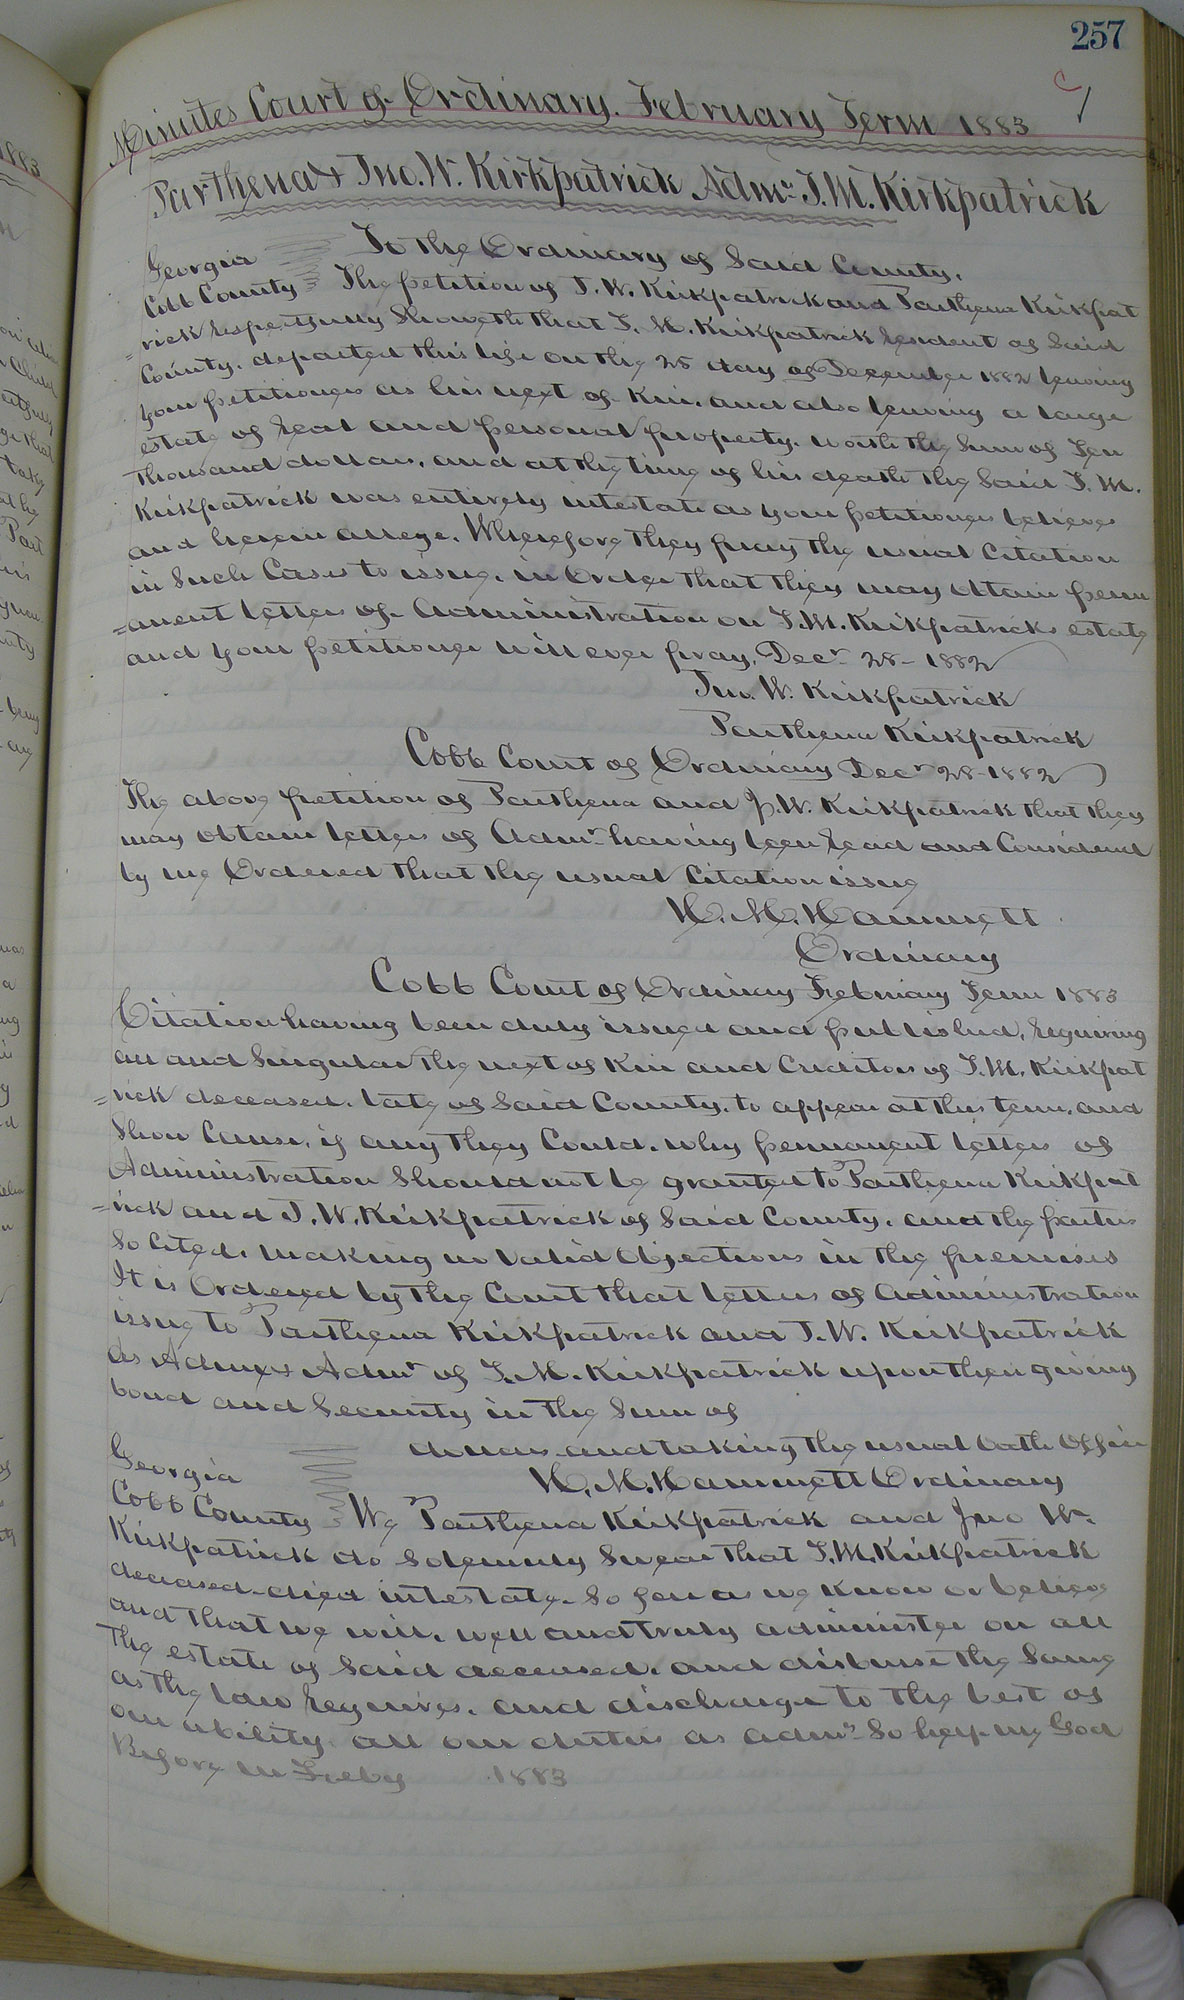 257
Minutes Court of Ordinary. February Term 1883
Parthena & Jno. W. Kirkpatrick Admrs J. M. Kirkpatrick
Georgia To the Ordinary of Said County.
Cobb County The petition of J. W. Kirkpatrick and Parthena Kirkpat
=rick respectfully Showeth that J. M. Kirkpatrick resident of Said
County, departed this life on the 25 day of December 1882 leaving
your petitioners as his next of Kin, and also leaving a large
estate of real and personal property. worth the Sum of Ten
thousand dollars, and at the time of his death the Said J. M.
Kirkpatrick was entirely intestate as your petitioners believe
and herein allege. Wherefore they pray the usual Citation
in Such Cases to issue, in Order that they may obtain perm
=anent letters of Administration on J. M. Kirkpatricks estate
and your petitioner will ever pray, Decr 28 - 1882
Jno. W. Kirkpatrick
Parthena Kirkpatrick
Cobb Court of Ordinary Decr 28-1882
The above petition of Parthena and J. W. Kirkpatrick that they
may obtain letters of Admr. having been read and Considered
by me Ordered that the usual Citation issue
H. M. Hammett
Ordinary
Cobb Court of Ordinary February Term 1883
Citation having been duly issued and published, requiring
all and Singular the next of Kin and Creditors of J. M. Kirkpat
=rick deceased, late of Said County, to appear at this term, and
Show Cause, if any they Could, why permanent letters of
Administration Should not be granted to Parthena Kirkpat
=rick and J. W. Kirkpatrick of Said County, and the parties
So Cited, making no valid Objections in the premises
It is Ordered by the Court that letters of Administration
issue to Parthena Kirkpatrick and J. W. Kirkpatrick
as Admx & Admr of J. M. Kirkpatrick upon their giving
bond and Security in the Sum of
dollars and taking the usual oath
Georgia H. M. Hammett Ordinary
Cobb County We Parthena Kirkpatrick and Jno W.
Kirkpatrick do Solemnly Swear that J. M. Kirkpatrick
deceased died intestate. So far as we know or believe
and that we will, well and truly administer on all
the estate of Said deceased, and disburse the Same
as the law requires, and discharge to the best of
our ability all our duties as admrs So help me God
Before me 1883